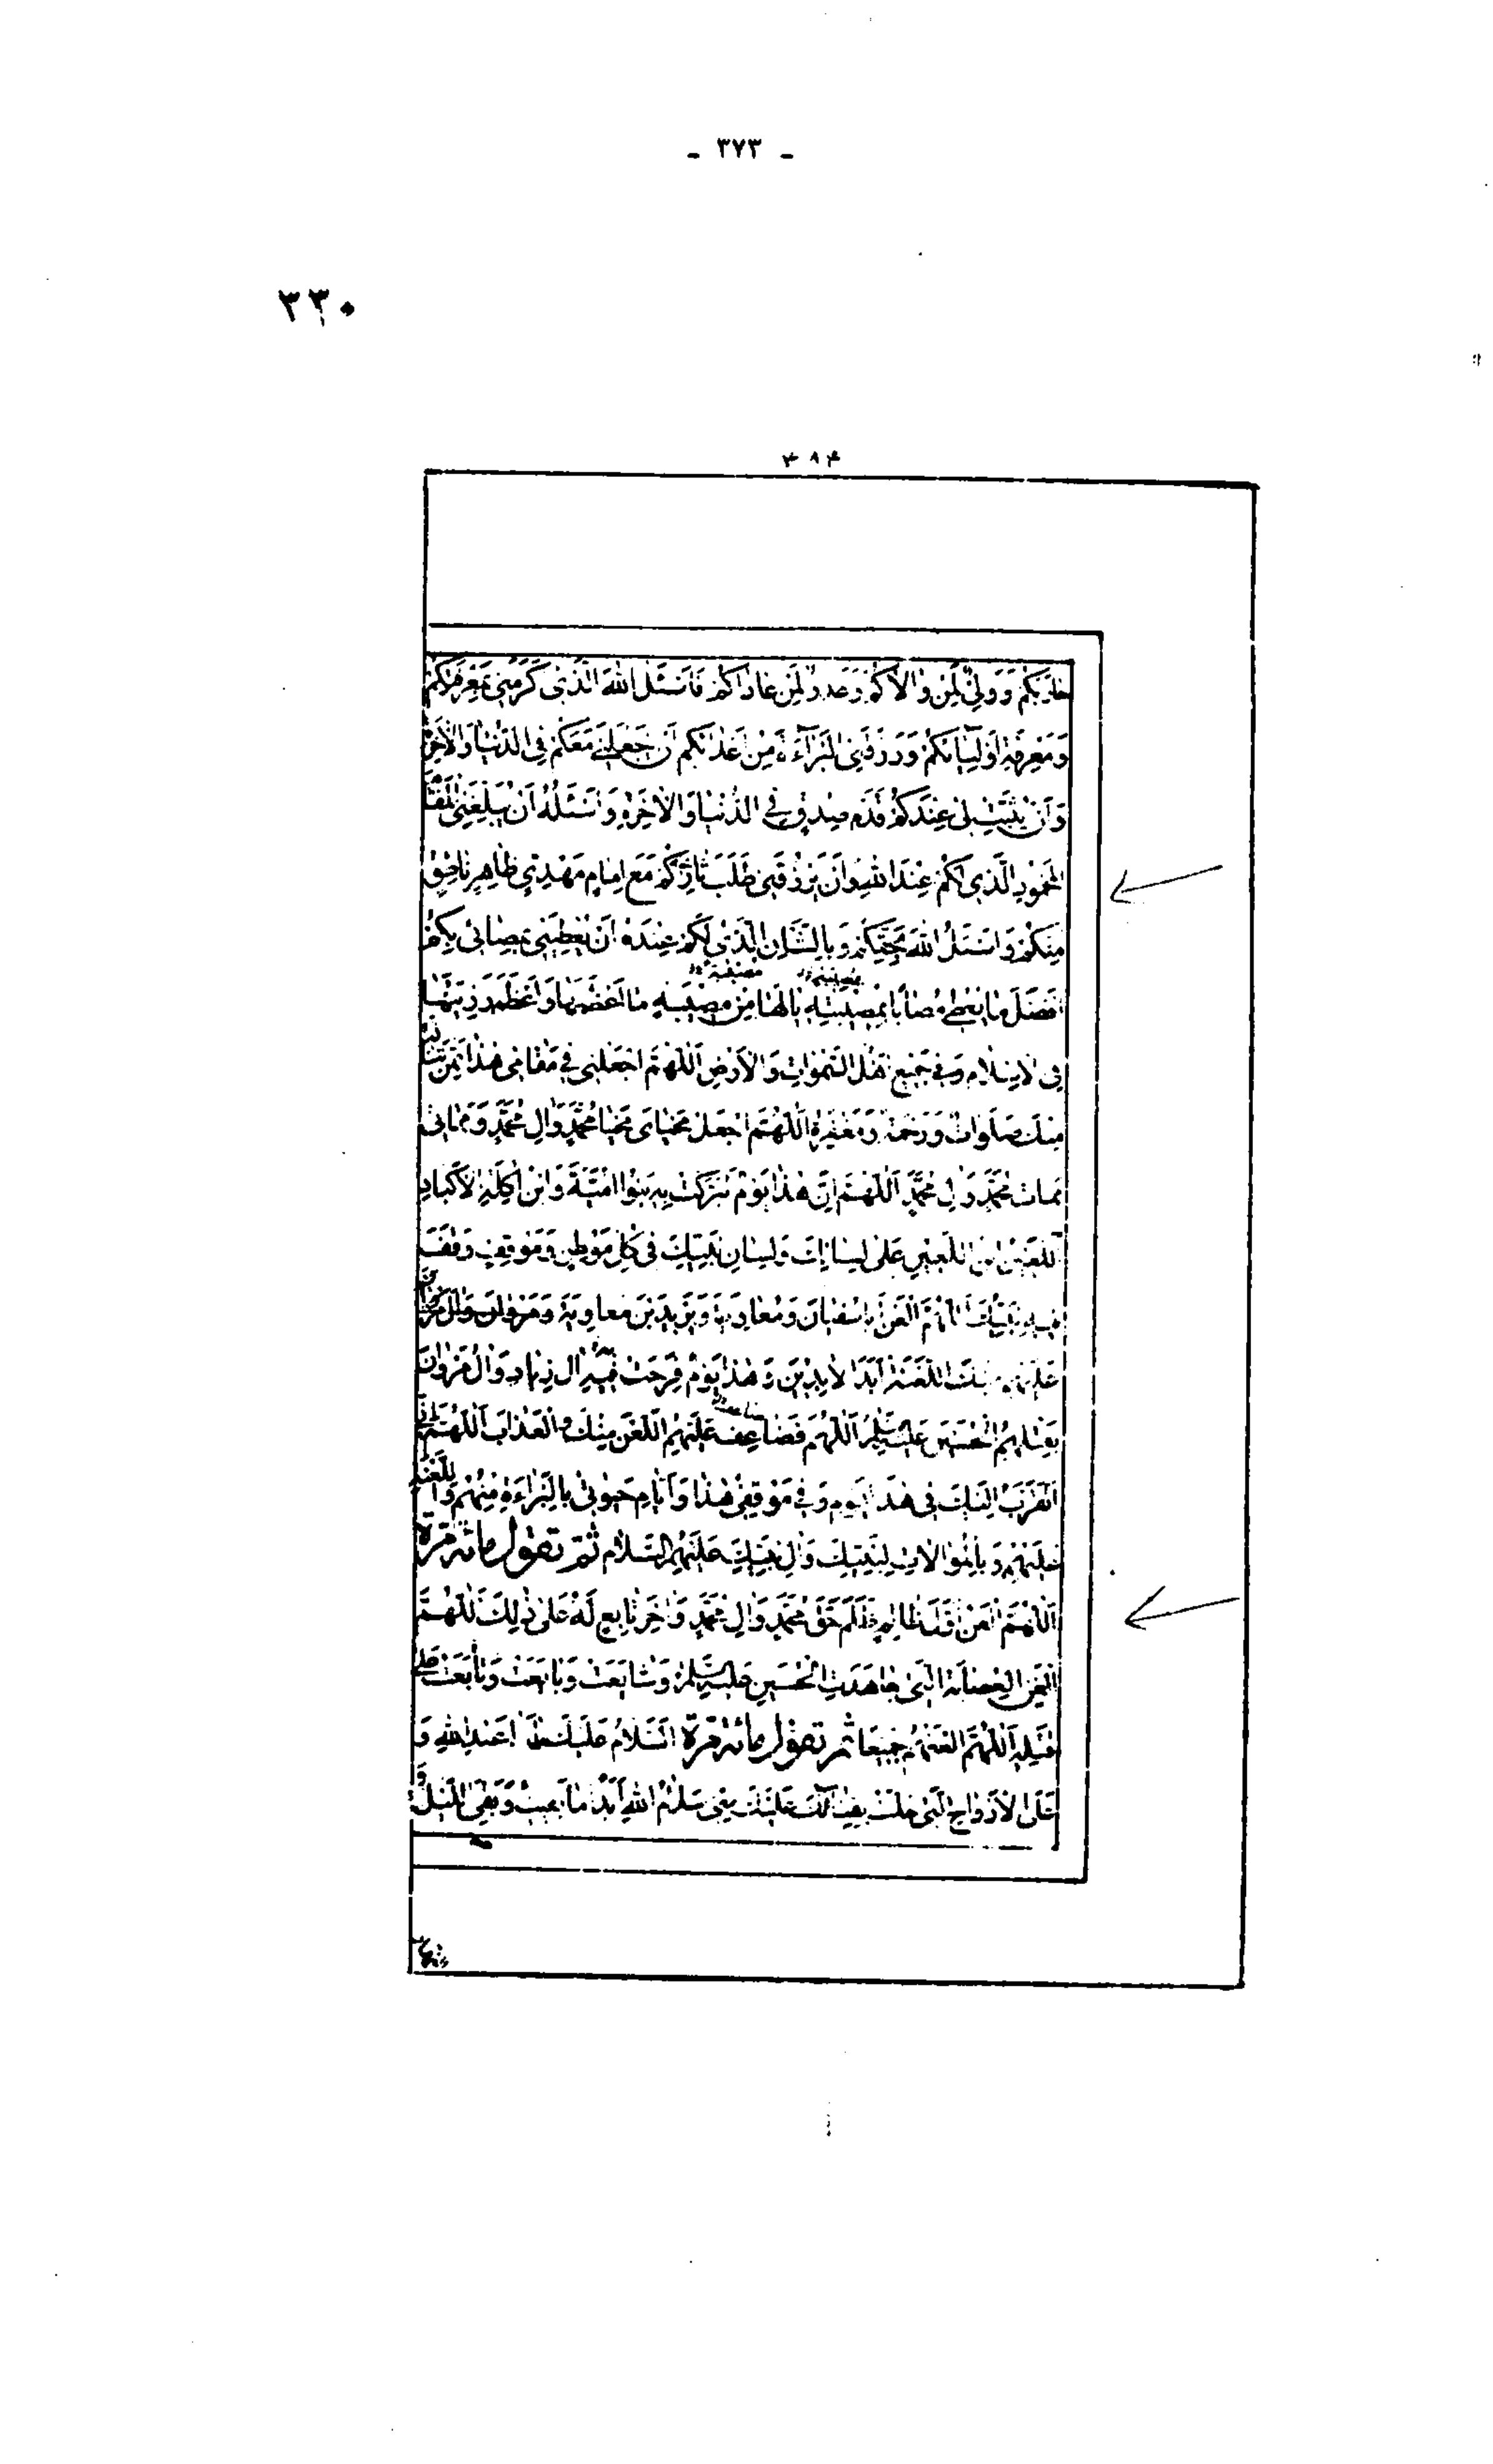 - ٣٧٣ -
٣٣٠
٣٨۴
حارَبَكُمْ وَ وَلِيٌّ لِمَنْ والاكُمْ وَعَدُوٌّ لِمَنْ عاداكُمْ فَاَسْئَلُ اللّٰهَ الَّذى كَرَّمَنى بِمَعْرِفَتِكُمْ
وَمَعْرِفَةِ اَوْلِيآئِكُمْ وَرَزَقَنِى الْبَرآءَةَ مِنْ اَعْدائِكُمْ اَنْ يَجْعَلَنى مَعَكُمْ فِى الدُّنْيا وَالْاخِرَةِ
وَاَنْ يُثَبِّتَ لى عِنْدَكُمْ قَدَمَ صِدْقٍ فِى الدُّنْيا وَالْاخِرَةِ وَاَسْئَلُهُ اَنْ يُبَلِّغَنِى الْمَقامَ
الْمَحْمُودَ الَّذى لَكُمْ عِنْدَ اللّٰهِ وَاَنْ يَرْزُقَنى طَلَبَ ثارِكُمْ مَعَ اِمامٍ مَهْدِىٍّ ظاهِرٍ ناطِقٍ
مِنْكُمْ وَاَسْئَلُ اللّٰهَ بِحَقِّكُمْ وَبِالشَّاْنِ الَّذى لَكُمْ عِنْدَهُ اَنْ يُعْطِيَنى بِمُصابى بِكُمْ
اَفْضَلَ ما يُعْطى مُصاباً بِمُصيبَتِهِ يا لَها مِنْ مُصيبَةٍ ما اَعْظَمَها وَاَعْظَمَ رَزِيَّتَها
فِى الْاِسْلامِ وَفى جَميعِ اَهْلِ السَّمٰواتِ وَالْاَرْضِ اَللّٰهُمَّ اجْعَلْنى فى مَقامى هٰذا مِمَّنْ تَنالُهُ
مِنْكَ صَلَواتٌ وَرَحْمَةٌ وَمَغْفِرَةٌ اَللّٰهُمَّ اجْعَلْ مَحْياىَ مَحْيا مُحَمَّدٍ وَالِ مُحَمَّدٍ وَمَماتى
مَماتَ مُحَمَّدٍ وَالِ مُحَمَّدٍ اَللّٰهُمَّ اِنَّ هٰذا يَوْمٌ تَبَرَّكَتْ بِهِ بَنُوا اُمَيَّةَ وَابْنُ اكِلَةِ الْاَكْبادِ
اللَّعينُ ابْنُ اللَّعينِ عَلى لِسانِكَ وَلِسانِ نَبِيِّكَ فى كُلِّ مَوْطِنٍ وَمَوْقِفٍ وَقَفَ
فيهِ نَبِيُّكَ اَللّٰهُمَّ الْعَنْ اَباسُفْيانَ وَمُعاوِيَةَ وَيَزيدَ بْنَ مُعاوِيَةَ وَمَرْوانَ وَالَ مَرْوانَ
عَلَيْهِمْ مِنْكَ اللَّعْنَةُ اَبَدَ الْابِدينَ وَهٰذا يَوْمٌ فَرِحَتْ فيهِ الُ زِيادٍ وَالُ مَرْوانَ
بِقَتْلِهِمُ الْحُسَيْنَ عَلَيْهِ السَّلامُ اَللّٰهُمَّ فَضاعِفْ عَلَيْهِمُ اللَّعْنَ مِنْكَ وَالْعَذابَ اَللّٰهُمَّ اِنّى
اَتَقَرَّبُ اِلَيْكَ فى هٰذَا الْيَوْمِ وَفى مَوْقِفى هٰذا وَاَيّامِ حَيٰوتى بِالْبَراءَةِ مِنْهُمْ وَاللَّعْنَةِ
عَلَيْهِمْ وَبِالْمُوالاتِ لِنَبِيِّكَ وَالِ نَبِيِّكَ عَلَيْهِمُ السَّلامُ ثمّ تقول مائة مرّة
اَللّٰهُمَّ الْعَنْ اَوَّلَ ظالِمٍ ظَلَمَ حَقَّ مُحَمَّدٍ وَالِ مُحَمَّدٍ وَاخِرَ تابِعٍ لَهُ عَلى ذٰلِكَ اَللّٰهُمَّ
الْعَنِ الْعِصابَةَ الَّتى جاهَدَتِ الْحُسَيْنَ عَلَيْهِ السَّلامُ وَشايَعَتْ وَبايَعَتْ وَتابَعَتْ عَلى
قَتْلِهِ اَللّٰهُمَّ الْعَنْهُمْ جَميعاً ثمّ تقول مائة مرّة اَلسَّلامُ عَلَيْكَ يا اَبا عَبْدِ اللّٰهِ وَ
عَلَى الْاَرْواحِ الَّتى حَلَّتْ بِفِنائِكَ عَلَيْكَ مِنّى سَلامُ اللّٰهِ اَبَداً ما بَقيتُ وَبَقِىَ اللَّيْلُ وَ